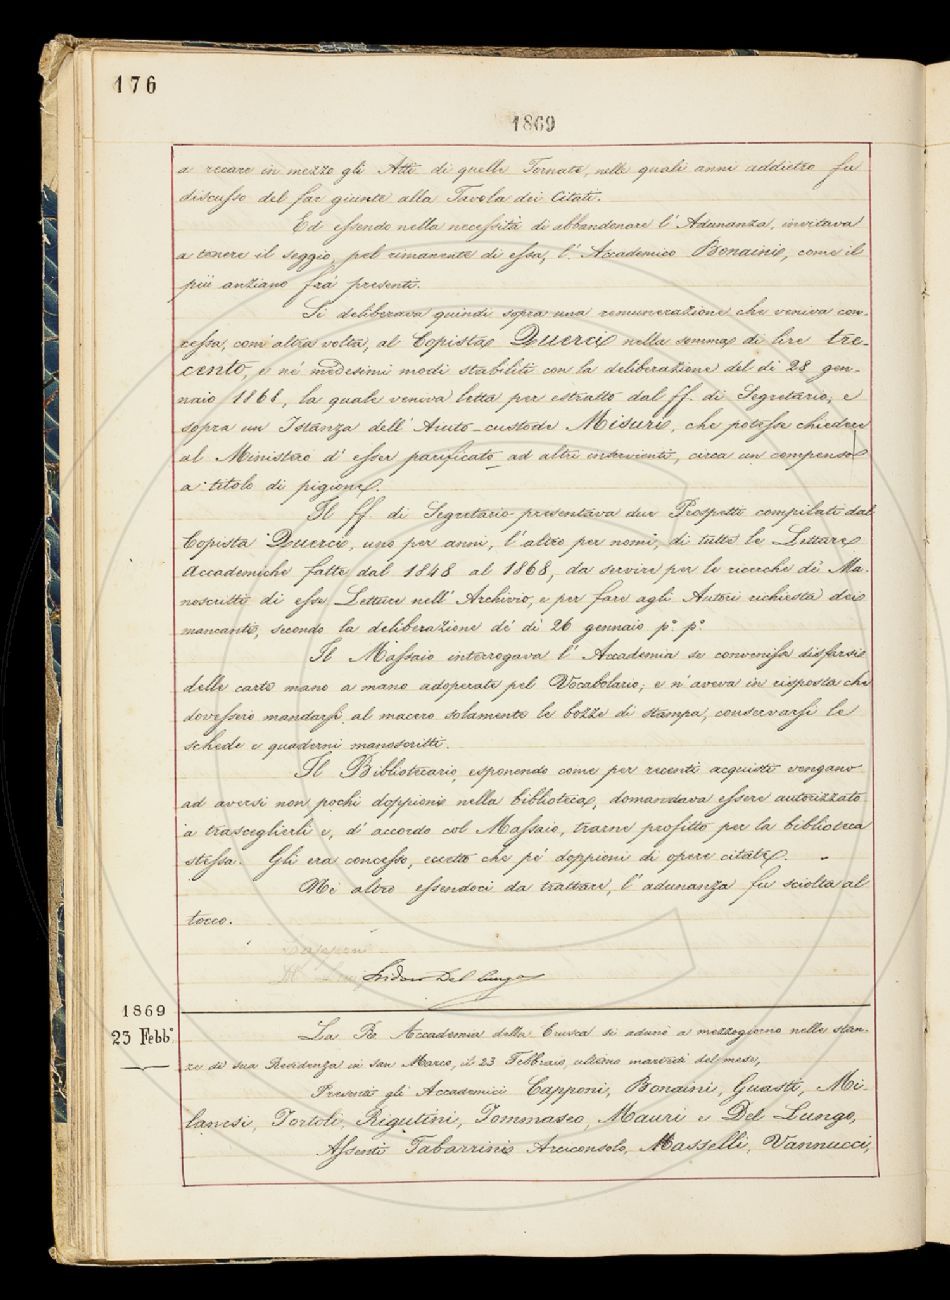 176
1869
a recare in mezzo gli Atti di quelle Tornate, nelle quali anni addietro fu
discusso del far giunte alla Tavola dei Citati.
Ed essendo nella necessità di abbandonare l'Adunanza, invitava
a tenere il seggio, pel rimanente di essa, l'Accademico Bonaini, come il
più anziano frà presenti.
Si deliberava quindi sopra una remunerazione che veniva con-
cessa, com'altra volta, al Copista Querci nella somma di lire tre-
cento, e ne' medesimi modi stabiliti con la deliberazione del dì 28 gen-
naio 1868, la quale veniva letta per estratto dal ff. di Segretario; e
sopra un'Istanza dell'Aiuto-custode Misuri, che potesse chiedere
al Ministero d'esser parificato ad altri inservienti, circa un compenso
a titolo di pigione.
Il ff. di Segretario presentava due Prospetti compilati dal
Copista Querci, uno per anni, l'altro per nomi, di tutte le Letture
Accademiche fatte dal 1848 al 1868, da servire per le ricerche de' Ma-
noscritti di esse Letture nell'Archivio, e per fare agli Autori richiesta dei
mancanti, secondo la deliberazione de' dì 26 gennaio p.º p.º
Il Massaio interrogava l'Accademia se convenisse disfarsi
delle carte mano a mano adoperate pel Vocabolario; e n'aveva in risposta che
dovessero mandarsi al macero solamente le bozze di stampa, conservarsi le
schede e quaderni manoscritti.
Il Bibliotecario, esponendo come per recenti acquisti vengano
ad aversi non pochi doppioni nella biblioteca, domandava essere autorizzato
a trasceglierli e, d'accordo col Massaio, trarne profitto per la biblioteca
stessa. Gli era concesso, eccetto che pe' doppioni di opere citate.
Nè altro essendoci da trattare, l'adunanza fu sciolta al
tocco.
Capponi
Isidoro Del Lungo
1869
23 Febb.º
La R. Accademia della Crusca si adunò a mezzogiorno nelle stan-
ze di sua Residenza in San Marco, il 23 Febbraio, ultimo martedì del mese,
Presenti gli Accademici Capponi, Bonaini, Guasti, Mi-
lanesi, Tortoli, Rigutini, Tommaseo, Mauri e Del Lungo,
Assenti Tabarrini Arciconsolo, Masselli, Vannucci,